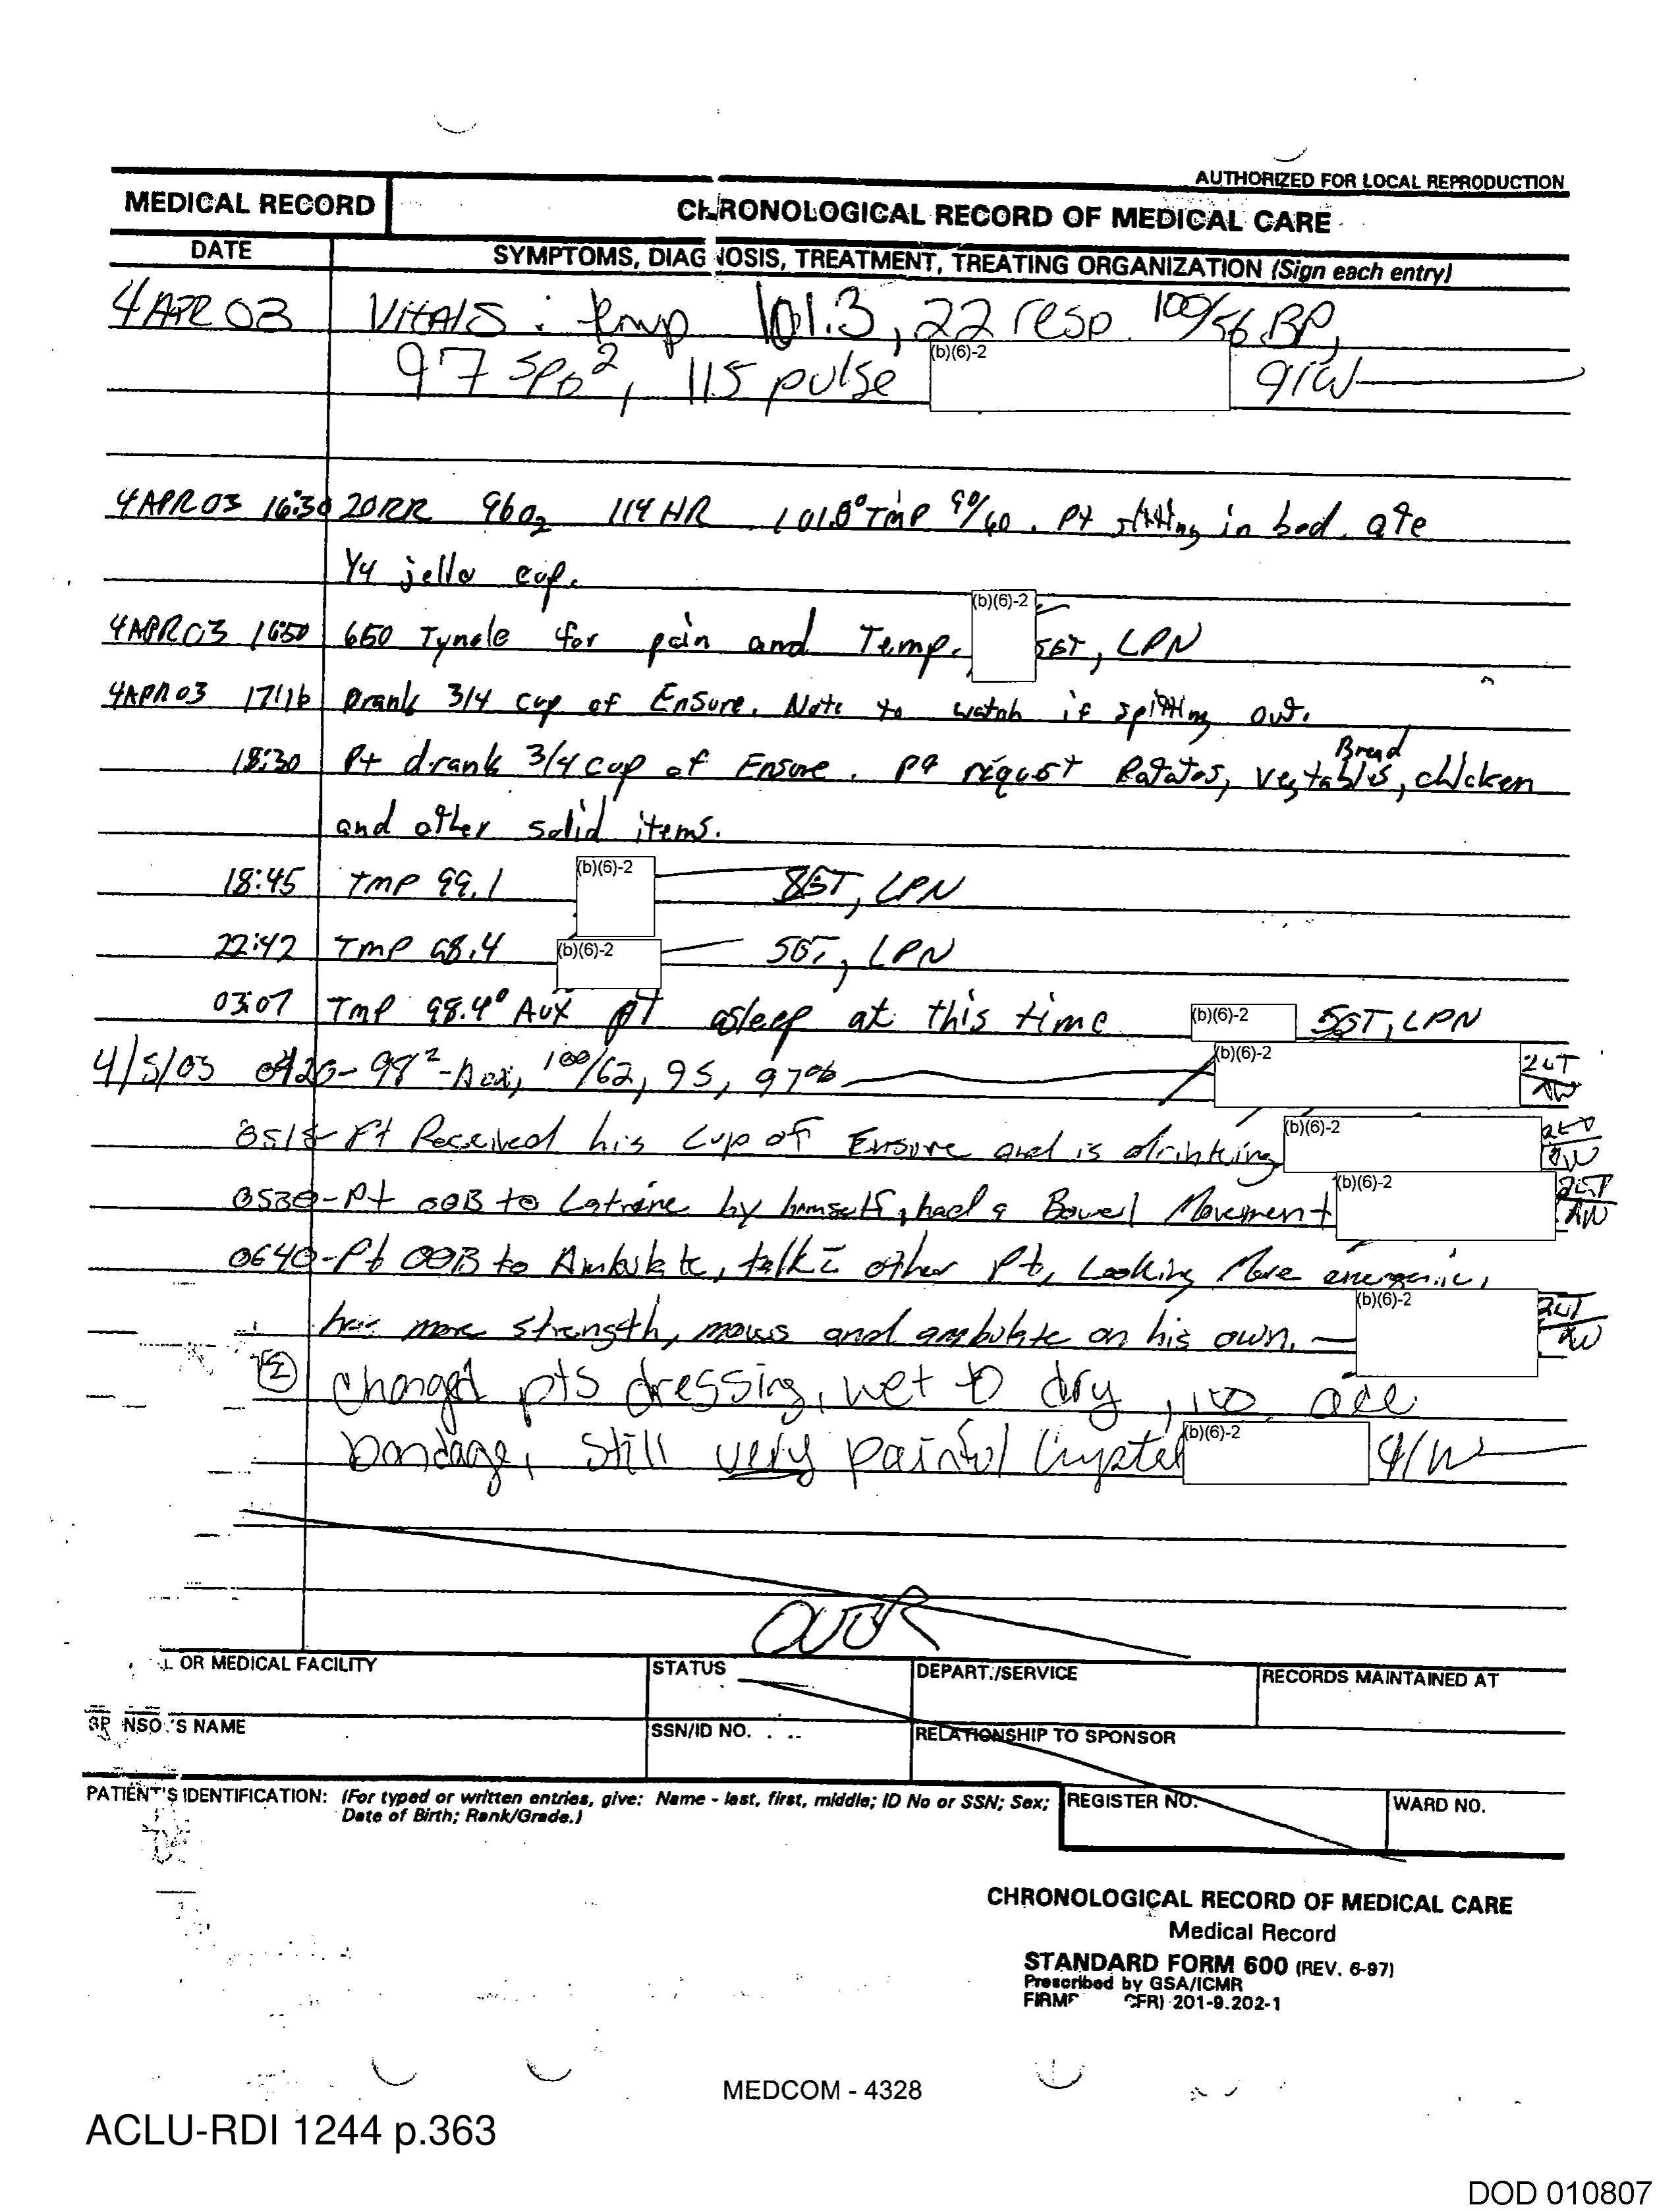 AUTHORIZED FOR LOCAL REPRODUCTION
MEDICAL RECORD
CHRONOLOGICAL RECORD OF MEDICAL CARE
DATE
SYMPTOMS, DIAGNOSIS, TREATMENT, TREATING ORGANIZATION (Sign each entry)
4 APR 03 VITALS: temp 101.3, 22 resp 100/56 BP,
97 SpO2, 115 pulse (b)(6)-2 91W
4 APR 03 16:30 20 RR 96 O2 114 HR 101.8° TMP 90/60. Pt sitting in bed. ate
1/4 jello cup.
4APR03 1650 650 Tynole for pain and Temp. (b)(6)-2 SGT, LPN
4APR03 17:16 Drank 3/4 cup of Ensure. Note to watch if spitting out.
18:30 Pt drank 3/4 cup of Ensure. Pt request Potatos, vegtables, Bread, chicken
and other solid items.
18:45 TMP 99.1 (b)(6)-2 SGT, LPN
22:42 TMP 98.4 (b)(6)-2 SGT, LPN
03:07 TMP 98.4° AUX PT asleep at this time (b)(6)-2 SGT, LPN
4/5/03 0420- 98²- Aox, 100/62, 95, 97% (b)(6)-2 2LT
0515- Pt Received his Cup of Ensure and is drinking (b)(6)-2
0530- Pt OOB to Latrine by himself, had a Bowel Movement (b)(6)-2
0640- Pt OOB to Ambulate, talk c̄ other Pt, Looking More energenic,
has more strength, moves and ambulate on his own. (b)(6)-2 2LT
changed pts dressing, wet to dry, ace
bandage, still very painful (b)(6)-2 91W
OVER
OR MEDICAL FACILITY
STATUS
DEPART./SERVICE
RECORDS MAINTAINED AT
SP NSO 'S NAME
SSN/ID NO.
RELATIONSHIP TO SPONSOR
PATIENT'S IDENTIFICATION: (For typed or written entries, give: Name - last, first, middle; ID No or SSN; Sex;
Date of Birth; Rank/Grade.)
REGISTER NO.
WARD NO.
CHRONOLOGICAL RECORD OF MEDICAL CARE
Medical Record
STANDARD FORM 600 (REV. 6-97)
Prescribed by GSA/ICMR
FIRMR CFR) 201-9.202-1
MEDCOM - 4328
ACLU-RDI 1244 p.363
DOD 010807